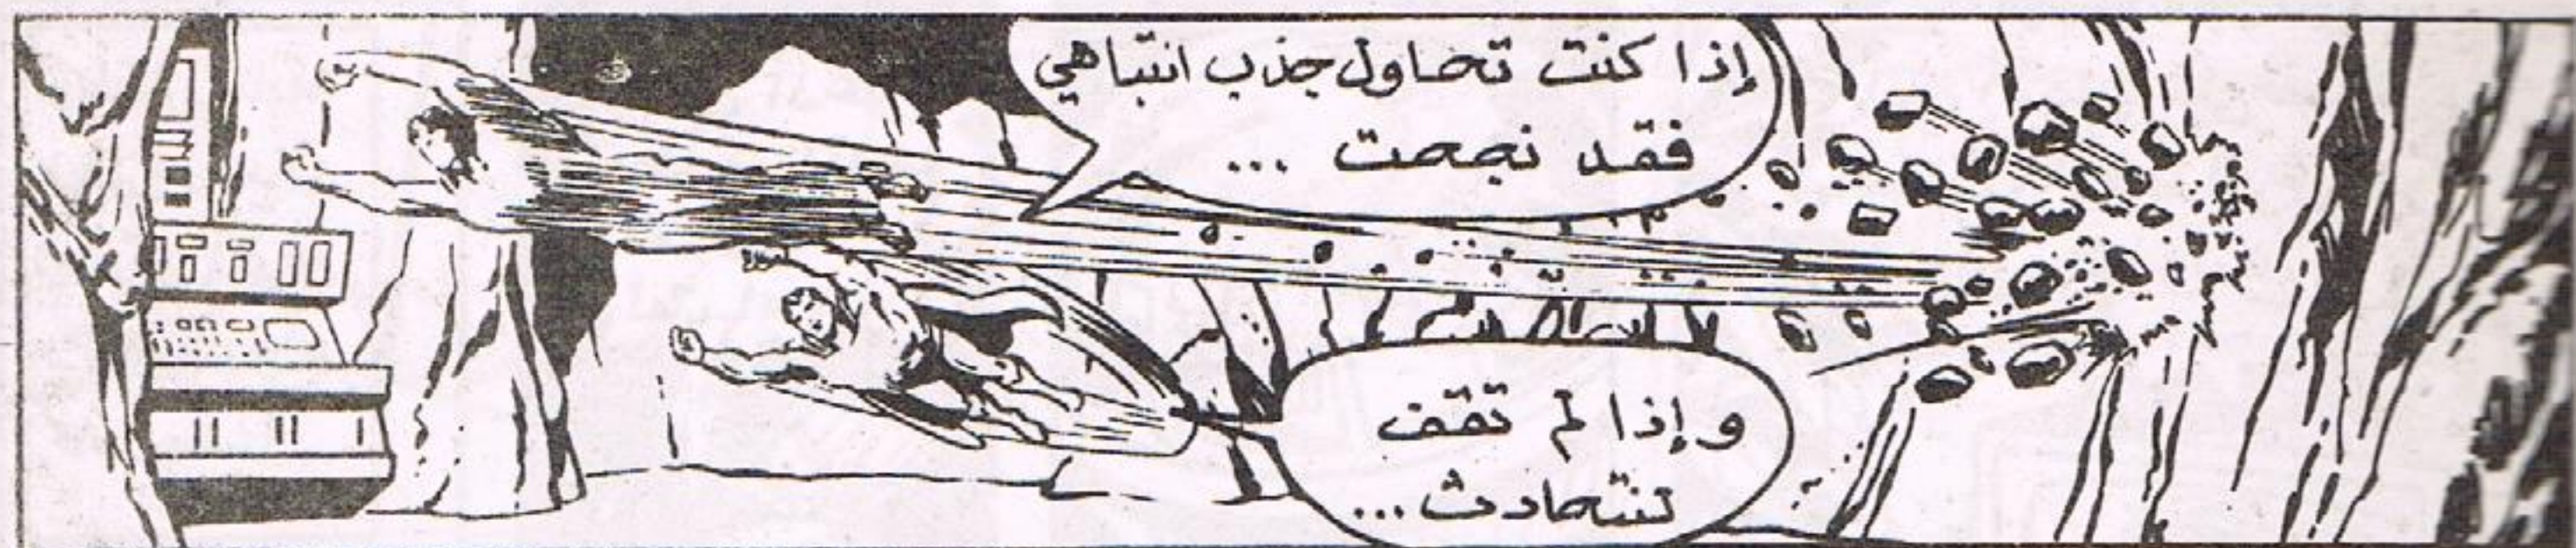 إذا كنت تحاول جذب انتباهي
فقد نجحت ...
و إذا لم تقف
نتحادث ...